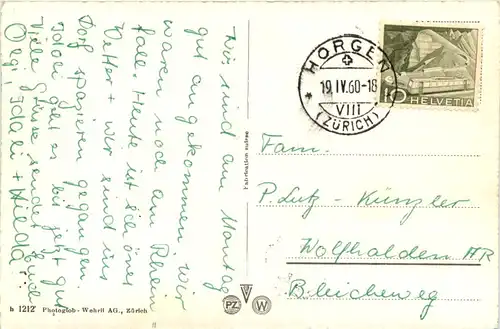 Wir sind am Montag
gut angekommen, wir
waren noch am Rhein
fall. Heute ist schönes
Wetter + wir sind ins
Dorf spazieren gegangen.
Idali geht es bis jetzt gut
Viele Grüsse sendet Euch
Idali + Hilda
HORGEN
19.IV.60-18
VIII
(ZÜRICH)
10 HELVETIA
Fam.
P. Lutz - Künzler
Wolfhalden AR
Bleicheweg
Fabrication suisse
PZ W
b 1212 Photoglob - Wehrli AG., Zürich